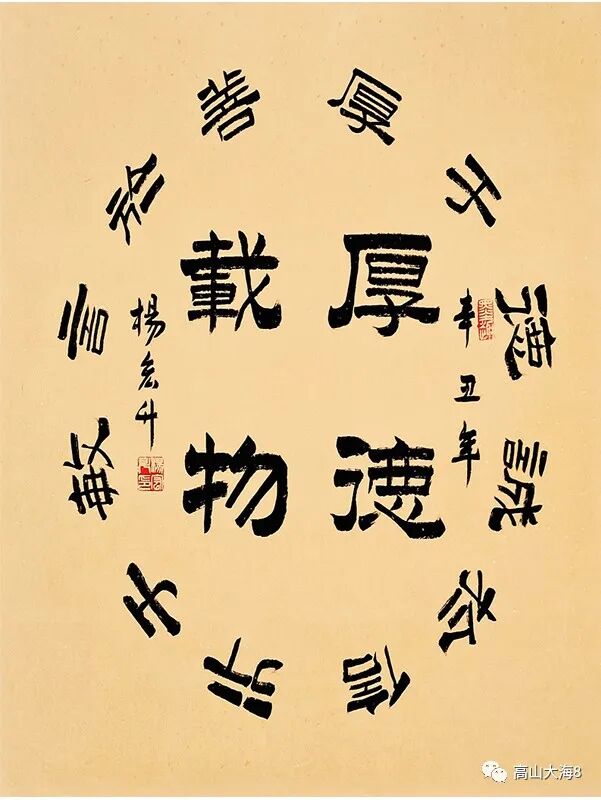 厚德
載物
厚于德誠於信行于敏言善
辛丑年
楊宏升
高山大海8